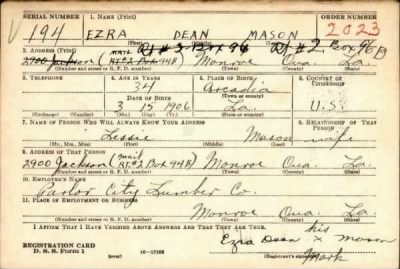 SERIAL NUMBER 1. NAME (Print) ORDER NUMBER
V 194 EZRA DEAN MASON 2023
(First) (Middle) (Last)
2. ADDRESS (Print) MAIL Rt #3 Box 96 Rt #2, Box 96B
2900 Jackson (RT. 2 BOX 94B) Monroe Oua. La.
(Number and street or R. F. D. number) (Town) (County) (State)
3. TELEPHONE 4. AGE IN YEARS 5. PLACE OF BIRTH 6. COUNTRY OF CITIZENSHIP
34 Arcadia
DATE OF BIRTH (Town or county)
3 15 1906 La. U.S.
(Exchange) (Number) (Mo.) (Day) (Yr.) (State or country)
7. NAME OF PERSON WHO WILL ALWAYS KNOW YOUR ADDRESS 8. RELATIONSHIP OF THAT PERSON
Lessie Mason wife
(Mr., Mrs., Miss) (First) (Middle) (Last)
9. ADDRESS OF THAT PERSON
2900 Jackson (mail RT. 2 Box 94B) Monroe Oua. La.
(Number and street or R. F. D. number) (Town) (County) (State)
10. EMPLOYER'S NAME
Parlor City Lumber Co.
11. PLACE OF EMPLOYMENT OR BUSINESS
Monroe Oua. La.
(Number and street or R. F. D. number) (Town) (County) (State)
I AFFIRM THAT I HAVE VERIFIED ABOVE ANSWERS AND THAT THEY ARE TRUE.
his
Ezra Dean x Mason
mark
REGISTRATION CARD
D. S. S. Form 1 16—17105 (Registrant's signature)